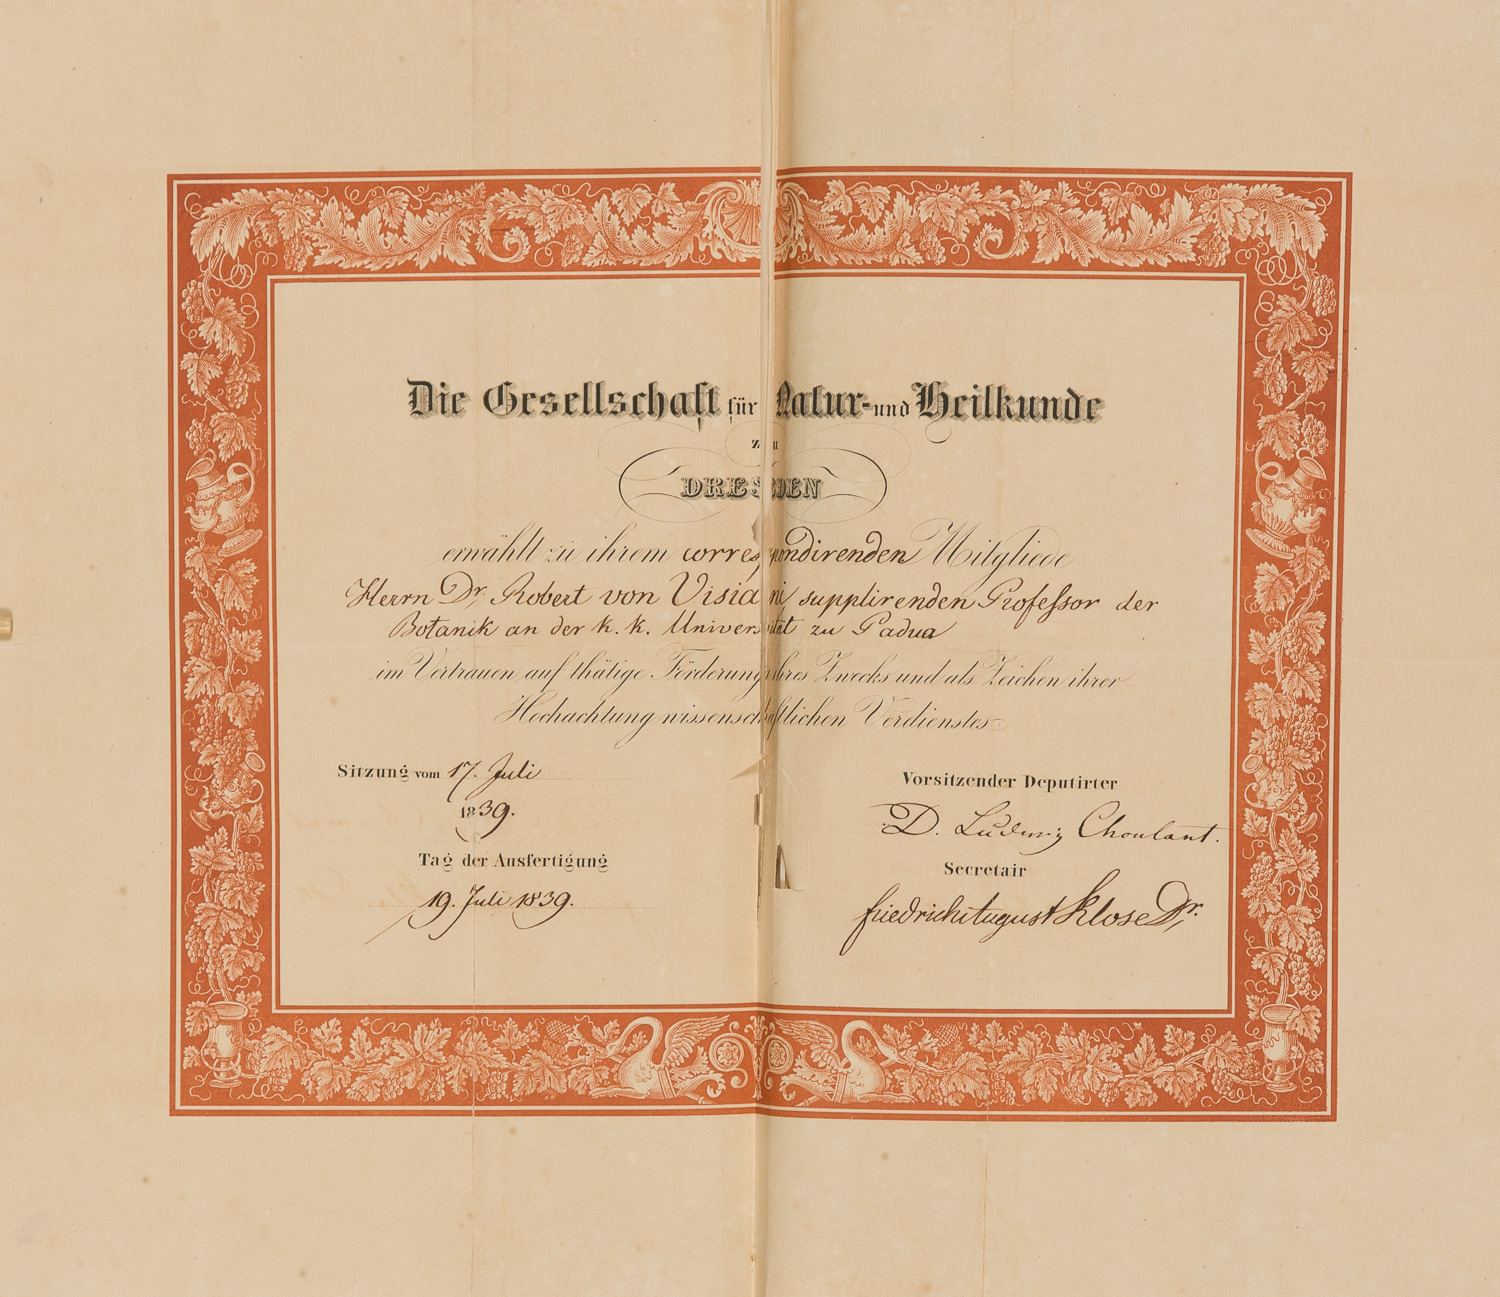 Die Gesellschaft für Natur- und Heilkunde
zu
DRESDEN
erwählt zu ihrem correspondirenden Mitgliede
Herrn Dr. Robert von Visiani supplirenden Professor der
Botanik an der k. k. Universität zu Padua
im Vertrauen auf thätige Förderung ihres Zwecks und als Zeichen ihrer
Hochachtung wissenschaftlichen Verdienstes
Sitzung vom 17. Juli
1839.
Tag der Ausfertigung
19. Juli 1839.
Vorsitzender Deputirter
D. Ludwig Choulant.
Secretair
Friedrich August Klose Dr.